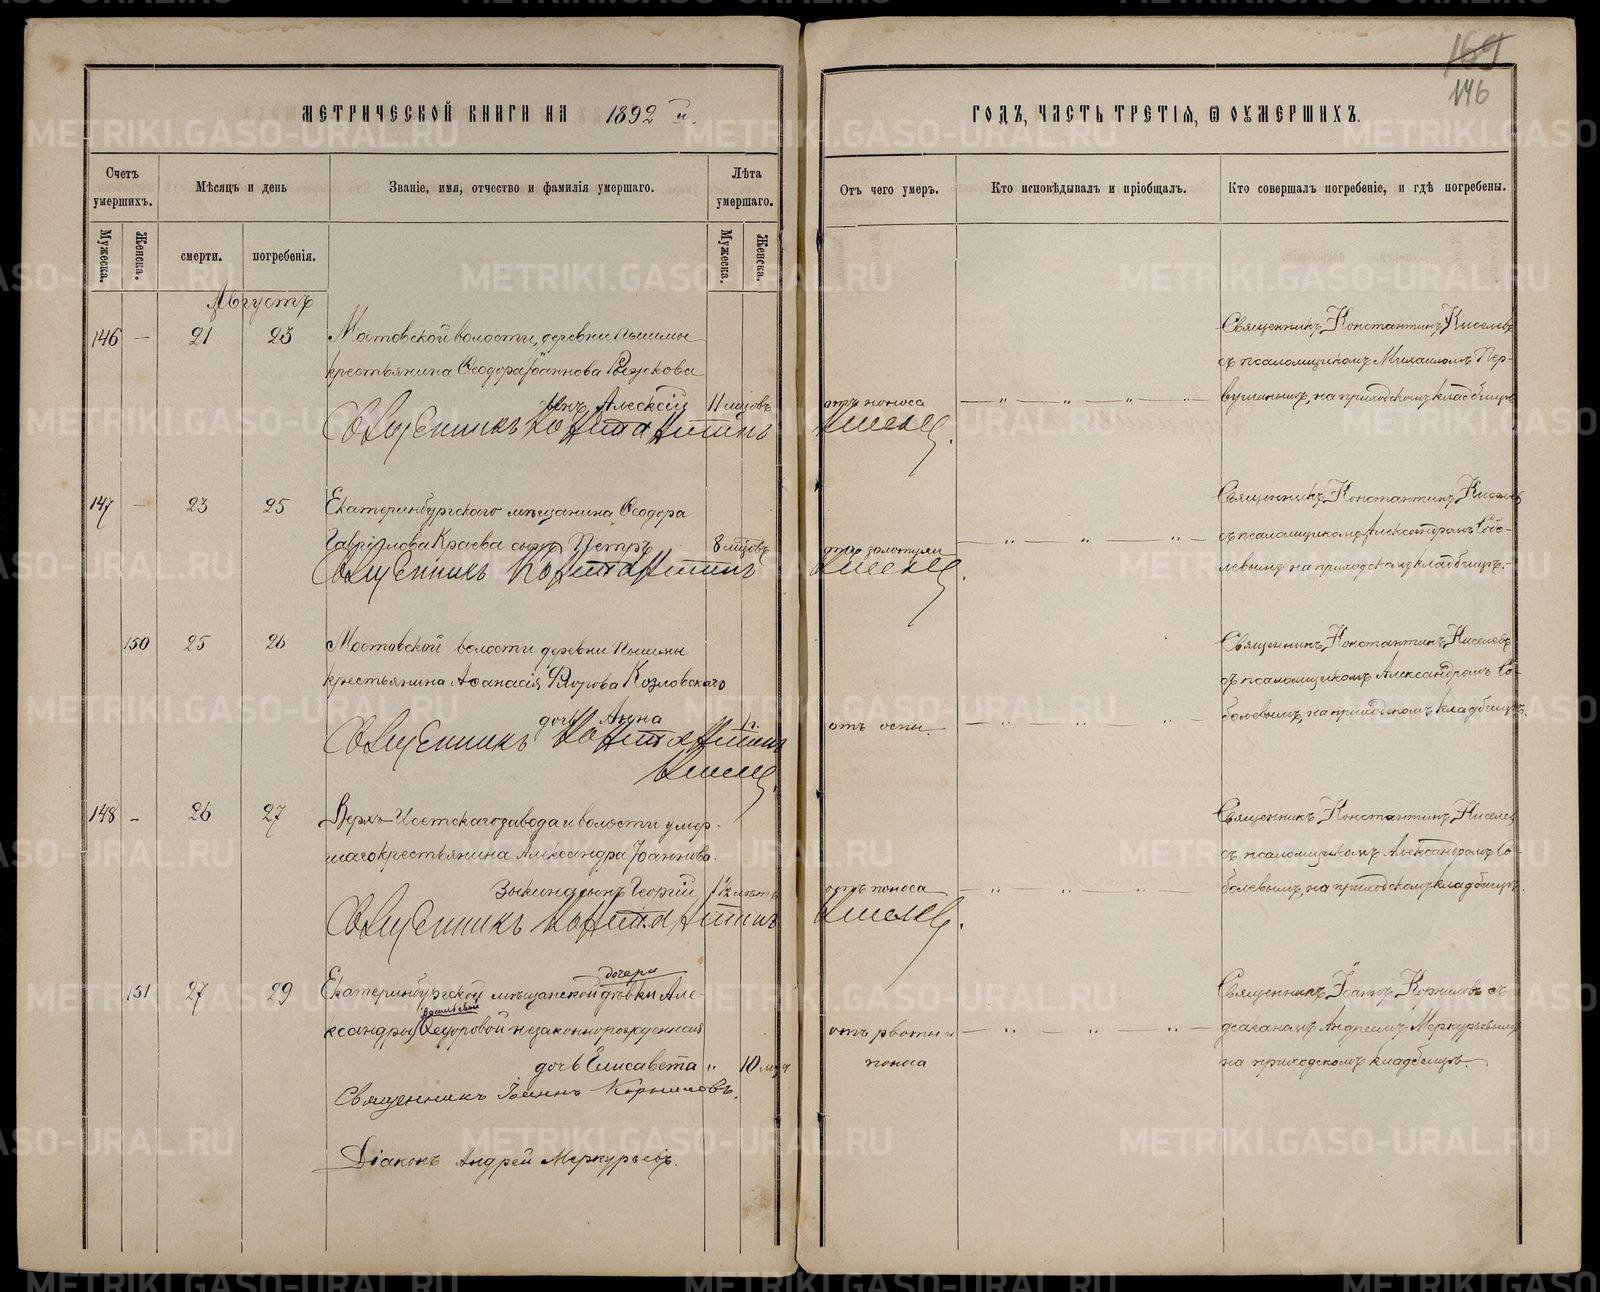 169
146
МЕТРИЧЕСКОЙ КНИГИ НА 1892 й.
ГОДЪ, ЧАСТЬ ТРЕТІЯ, Ѿ ОУМЕРШИХЪ.
Счетъ умершихъ.
Мѣсяцъ и день
Званіе, имя, отчество и фамилія умершаго.
Лѣта умершаго.
Отъ чего умеръ.
Кто исповѣдывалъ и пріобщалъ.
Кто совершалъ погребеніе, и гдѣ погребены.
Мужеска.
Женска.
смерти.
погребенія.
Мужеска.
Женска.
Августъ
146 — 21 23 Мостовской волости, деревни Пышмы
крестьянина Ѳеодора Іоаннова Рыжкова
сынъ Алексій 11 мцовъ
отъ поноса
Священникъ Константинъ Киселевъ
съ псаломщикомъ Михаиломъ Пер-
вушинымъ, на приходскомъ кладбищѣ
Священникъ Константинъ Киселев.
147 — 23 25 Екатеринбургскаго мѣщанина Ѳеодора
Гавріилова Краева сынъ Петръ 8 мцовъ
отъ золотухи
Священникъ Константинъ Киселевъ
съ псаломщикомъ Александромъ Собо-
левымъ на приходскомъ кладбищѣ.-
Священникъ Константинъ Киселев.
150 25 26 Мостовской волости деревни Пышмы
крестьянина Аѳанасія Флорова Козловскаго
дочь Анна 1 г.
отъ оспы.
Священникъ Константинъ Киселевъ
съ псаломщикомъ Александромъ Со-
болевымъ, на приходскомъ кладбищѣ.
Священникъ Константинъ
Киселев.
148 — 26 27 Верхъ-Исетскаго завода и волости умер-
шаго крестьянина Александра Іоаннова
Зыкина сынъ Георгій 1½ лѣтъ
отъ поноса
Священникъ Константинъ Киселев
съ псаломщикомъ Александромъ Со-
болевымъ, на приходскомъ кладбищѣ.
Священникъ Константинъ Киселев.
дочери
151 27 29 Екатеринбургской мѣщанской дѣвки Але-
ксандры Ѳедоровой незаконнорожденная
дочь Елисавета „ 10 мца
отъ рвоты и
поноса
Священникъ Іоаннъ Корниловъ съ
діакономъ Андреемъ Меркурьевымъ
на приходскомъ кладбищѣ.
Священникъ Іоаннъ Корниловъ.
Діаконъ Андрей Меркурьевъ.
METRIKI.GASO-URAL.RU